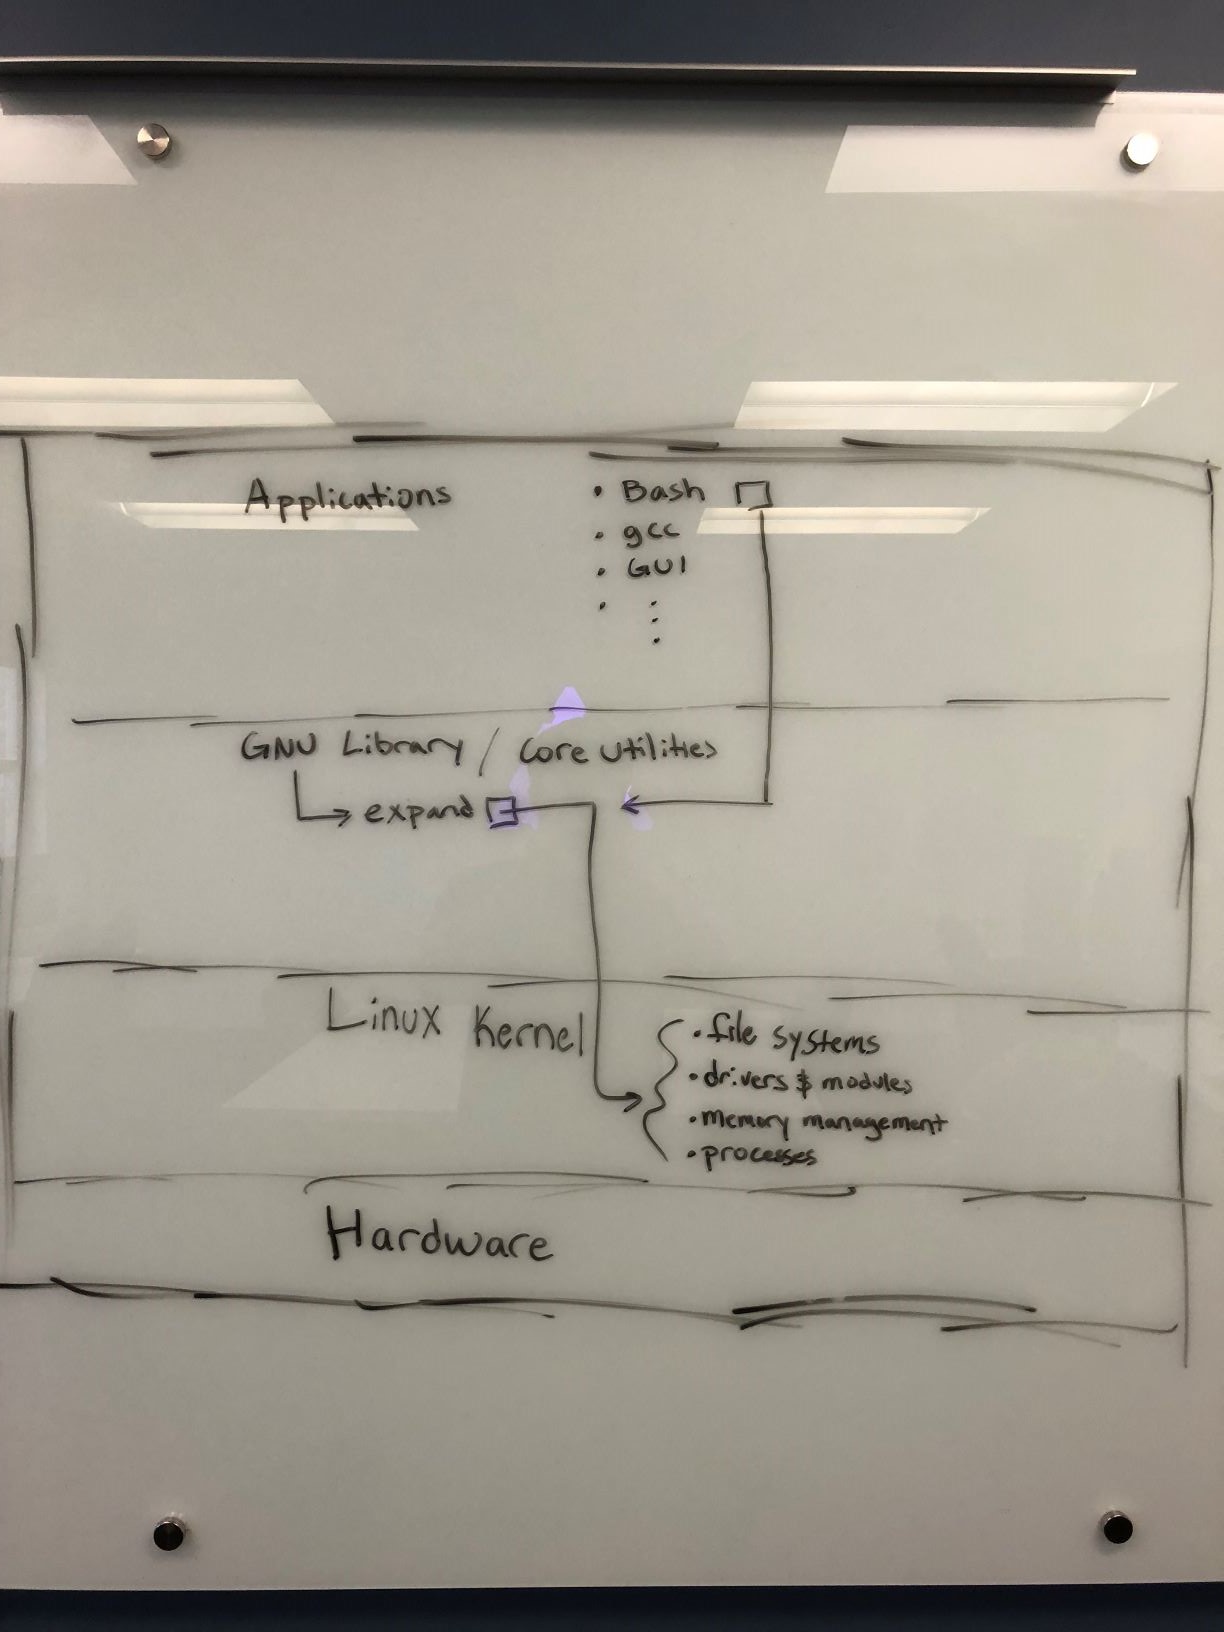 Applications
• Bash
• gcc
• GUI
• ⋮
GNU Library / Core utilities
expand
Linux Kernel
• file systems
• drivers & modules
• memory management
• processes
Hardware